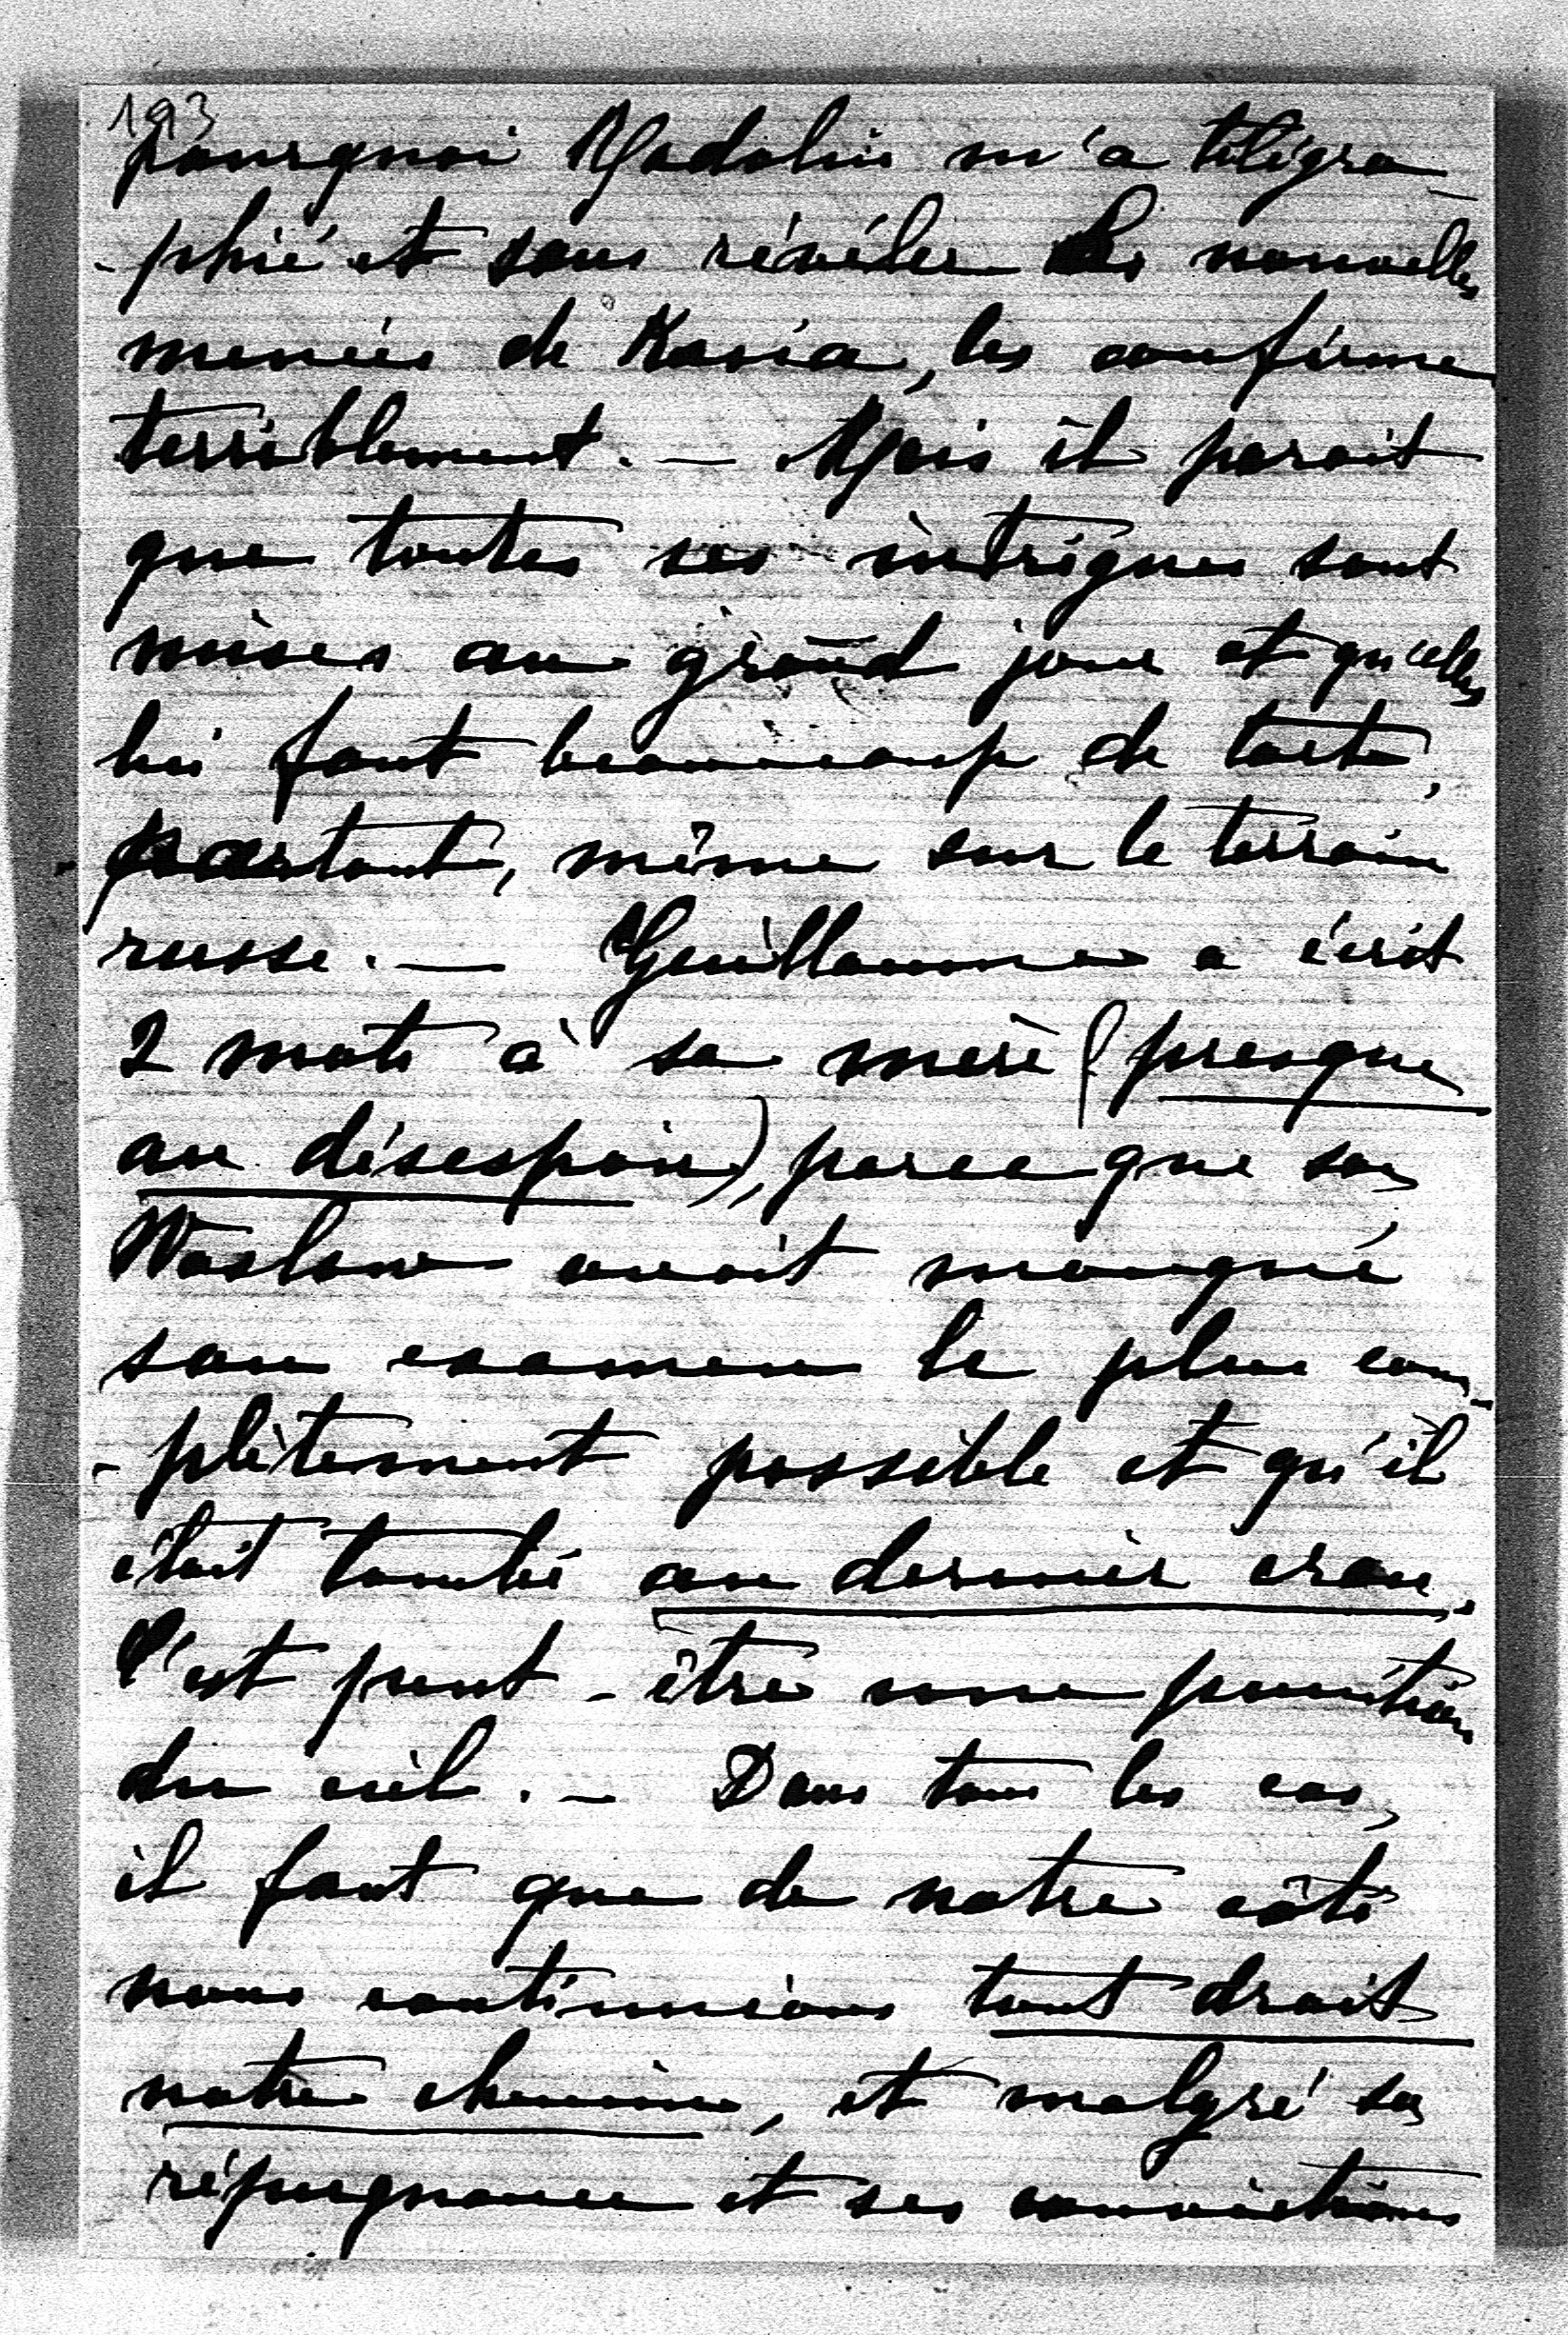 193
pourquoi Madolin m'a télégra-
-phié et sans révéler les nouvelles
menées de Kasia, les confirme
terriblement. — Mais il parait
que toutes ses intrigues sont
mises au grand jour et qu'elles
lui font beaucoup de torts,
partout, même sur le terrain
russe. — Guillaume a écrit
2 mots à sa mère (presque
au désespoir), parce que son
Waslaw avait manqué
son examen le plus com-
-plètement possible et qu'il
était tombé au dernier cran.
C'est peut-être une punition
du ciel. — Dans tous les cas,
il faut que de notre côté
nous continuions tout droit
notre chemin, et malgré sa
répugnance et ses convictions